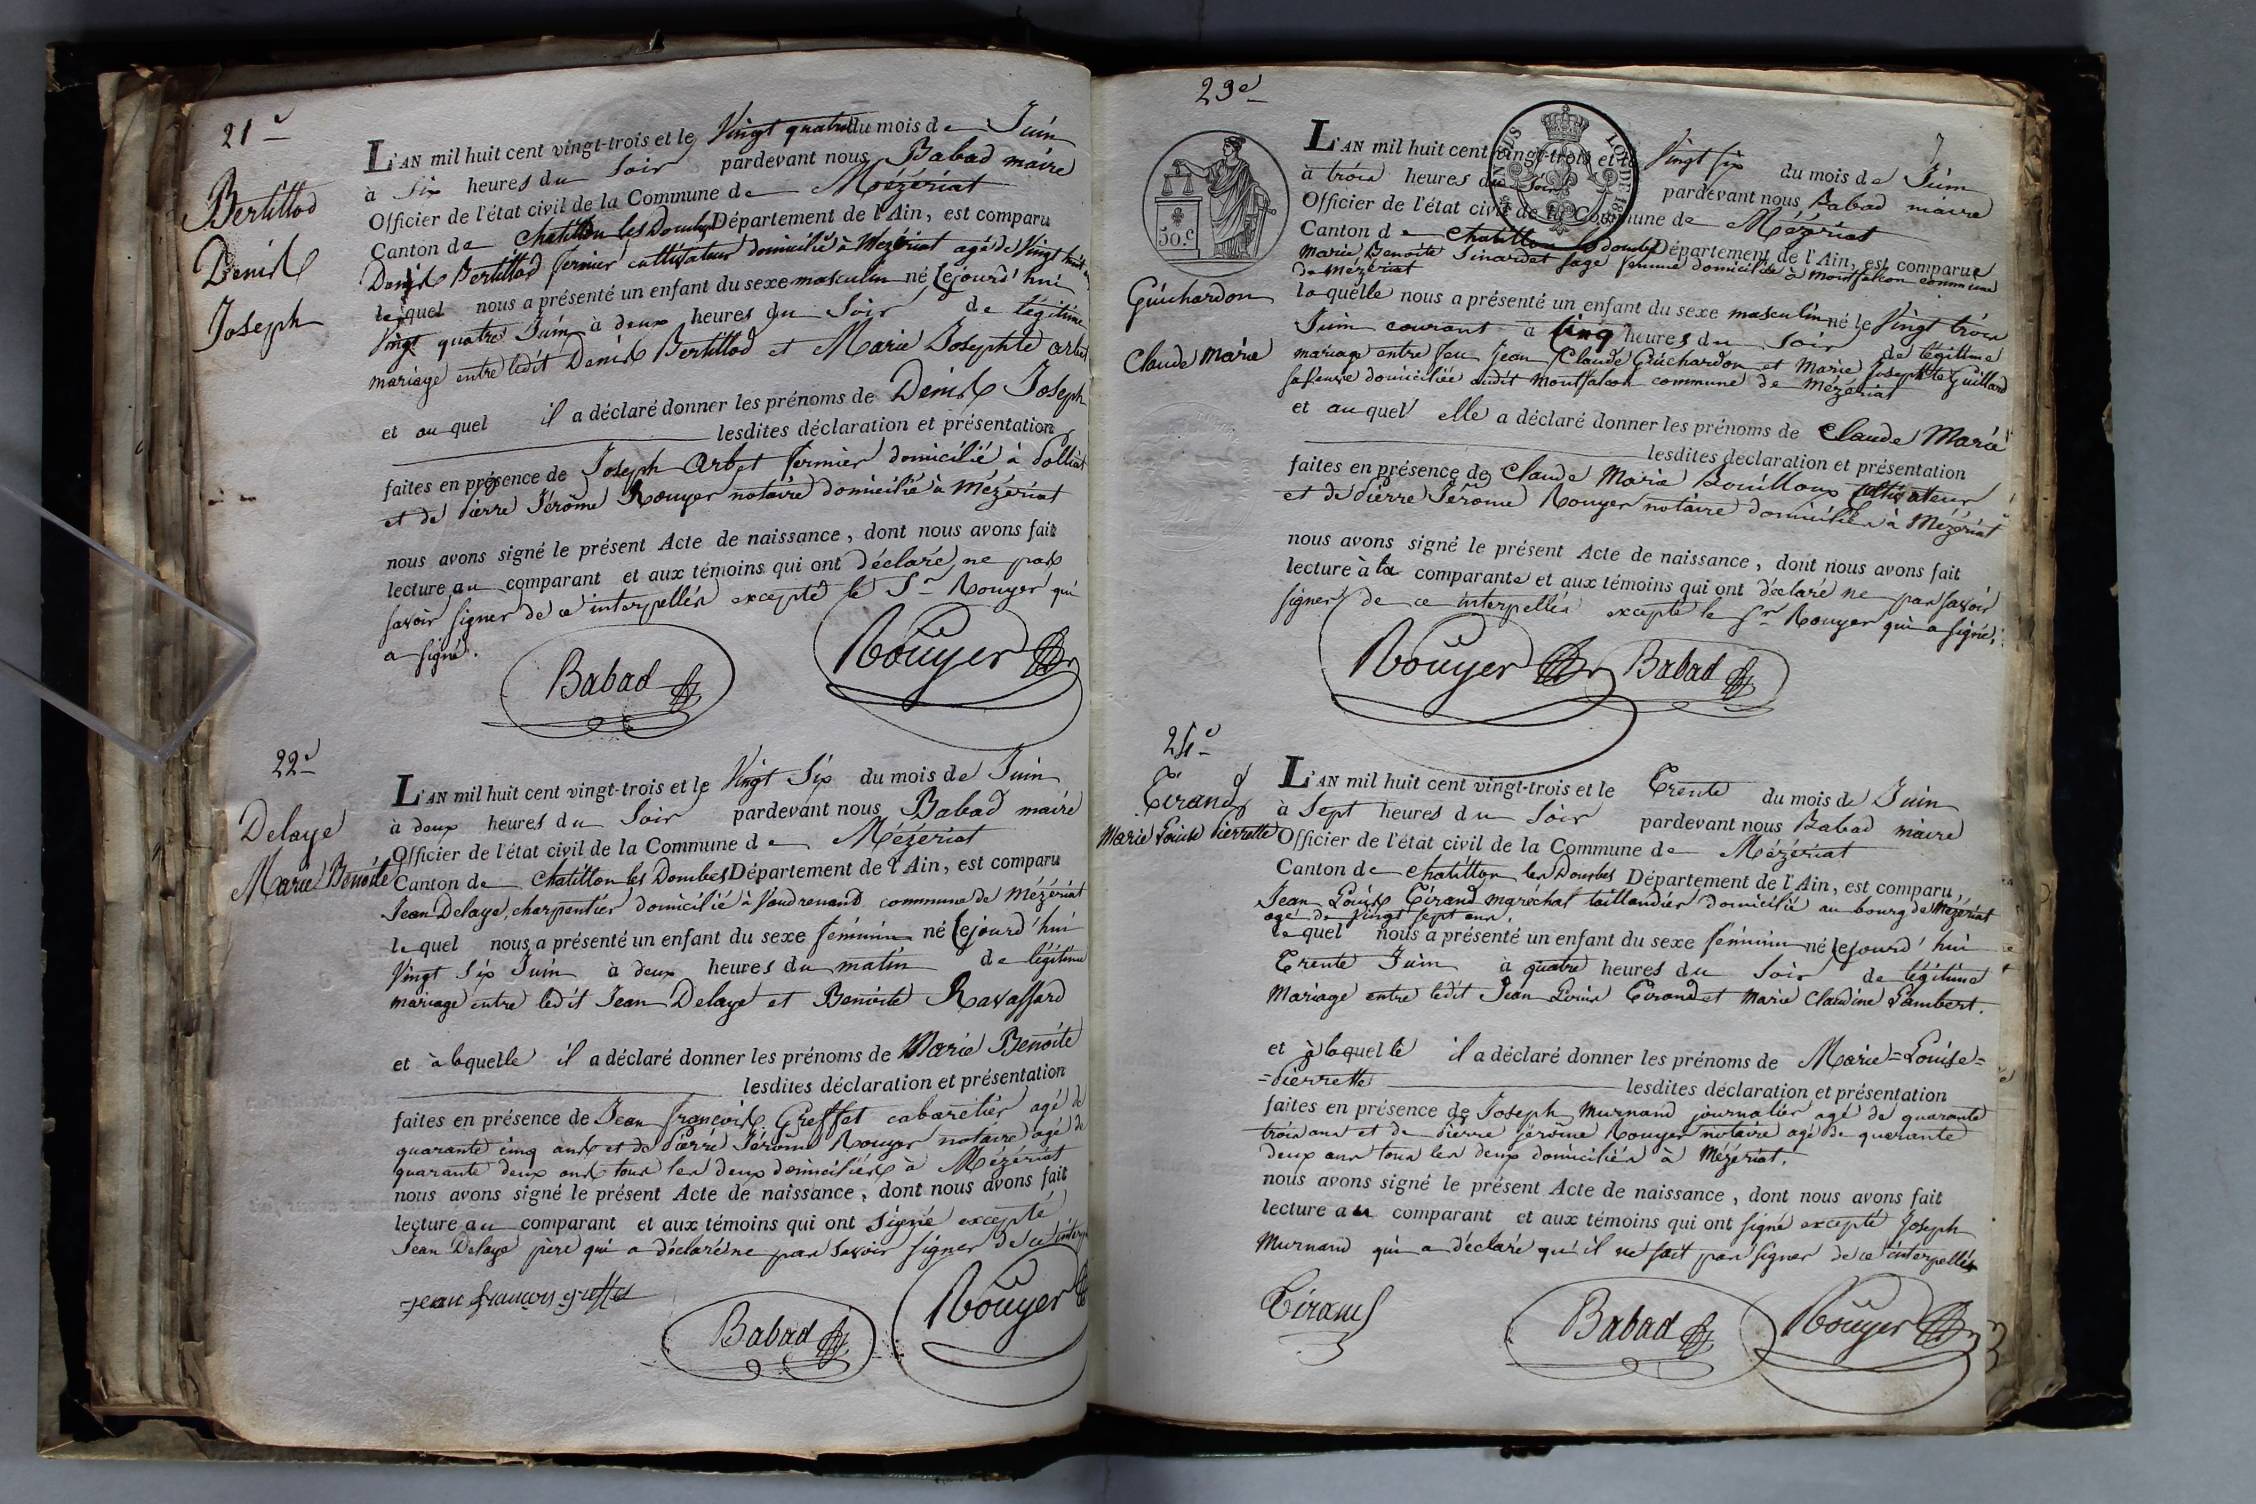 21e
Bertillod
Denis
Joseph
L'AN mil huit cent vingt-trois et le Vingt quatre du mois de Juin
à Six heures du Soir pardevant nous Babad maire
Officier de l'état civil de la Commune de Mézériat
Canton de Chatillon les Dombes Département de l'Ain, est comparu
Denis Bertillod fermier cultivateur domicilié à Mézériat agé de Vingt huit
lequel nous a présenté un enfant du sexe masculin né cejourd'hui
Vingt quatre Juin à deux heures du Soir de légitime
mariage entre ledit Denis Bertillod et Marie Josephte Arbet
et auquel il a déclaré donner les prénoms de Denis Joseph
lesdites déclaration et présentation
faites en présence de Joseph Arbet fermier domicilié à Polliat
et de Pierre Jérôme Rouyer notaire domicilié à Mézériat
nous avons signé le présent Acte de naissance, dont nous avons fait
lecture au comparant et aux témoins qui ont déclaré ne pas
savoir signer de ce interpellés excepté le Sr Rouyer qui
a signé.
Babad Rouyer
22e
Delaye
Marie Benoite
L'AN mil huit cent vingt-trois et le Vingt Six du mois de Juin
à deux heures du Soir pardevant nous Babad maire
Officier de l'état civil de la Commune de Mézériat
Canton de Chatillon les Dombes Département de l'Ain, est comparu
Jean Delaye, charpentier domicilié à Vaudrenand commune de Mézériat
lequel nous a présenté un enfant du sexe féminin né cejourd'hui
Vingt Six Juin à deux heures du matin de légitime
mariage entre ledit Jean Delaye et Benoite Ravassard
et à laquelle il a déclaré donner les prénoms de Marie Benoite
lesdites déclaration et présentation
faites en présence de Jean françois Greffet cabaretier agé de
quarante cinq ans et de Pierre Jérôme Rouyer notaire agé de
quarante deux ans tous les deux domiciliés à Mézériat
nous avons signé le présent Acte de naissance, dont nous avons fait
lecture au comparant et aux témoins qui ont signé excepté
Jean Delaye père qui a déclaré ne pas savoir signer de ce interp
jean françois greffet
Babad Rouyer
23e
50.c
Guichardon
Claude Marie
L'AN mil huit cent vingt-trois et le Vingt six du mois de Juin
à trois heures du Soir pardevant nous Babad maire
Officier de l'état civil de la Commune de Mézériat
Canton de Chatillon les dombes Département de l'Ain, est comparue
Marie Benoite Sinardet sage femme domiciliée à Montfalcon commune
de Mézériat
laquelle nous a présenté un enfant du sexe masculin né le Vingt trois
Juin courant à Cinq heures du Soir de légitime
mariage entre feu Jean Claude Guichardon et Marie Josephte Guillard
sa Veuve domiciliée audit Montfalcon commune de Mézériat
et auquel elle a déclaré donner les prénoms de Claude Marie
lesdites déclaration et présentation
faites en présence de Claude Marie Bouilloux cultivateur
et de Pierre Jérome Rouyer notaire domiciliés à Mézériat
nous avons signé le présent Acte de naissance, dont nous avons fait
lecture à la comparante et aux témoins qui ont déclaré ne pas savoir
signer de ce interpellés excepté le Sr Rouyer qui a signé.
Rouyer Babad
24e
Tirand
Marie Louise Pierrette
L'AN mil huit cent vingt-trois et le Trente du mois de Juin
à Sept heures du Soir pardevant nous Babad maire
Officier de l'état civil de la Commune de Mézériat
Canton de chatillon les Dombes Département de l'Ain, est comparu,
Jean Louis Tirand maréchal taillandier domicilié au bourg de Mézériat
agé de Vingt sept ans.
lequel nous a présenté un enfant du sexe féminin né cejourd'hui
Trente Juin à quatre heures du Soir de légitime
Mariage entre ledit Jean Louis Tirand et Marie Claudine Lambert.
et à laquelle il a déclaré donner les prénoms de Marie=Louise=
=Pierrette lesdites déclaration et présentation
faites en présence de Joseph Murnand journalier agé de quarante
trois ans et de Pierre jérôme Rouyer notaire agé de quarante
deux ans tous les deux domiciliés à Mézériat.
nous avons signé le présent Acte de naissance, dont nous avons fait
lecture au comparant et aux témoins qui ont signé excepté Joseph
Murnand qui a déclaré qu'il ne sait pas signer de ce interpellés
Tirand Babad Rouyer